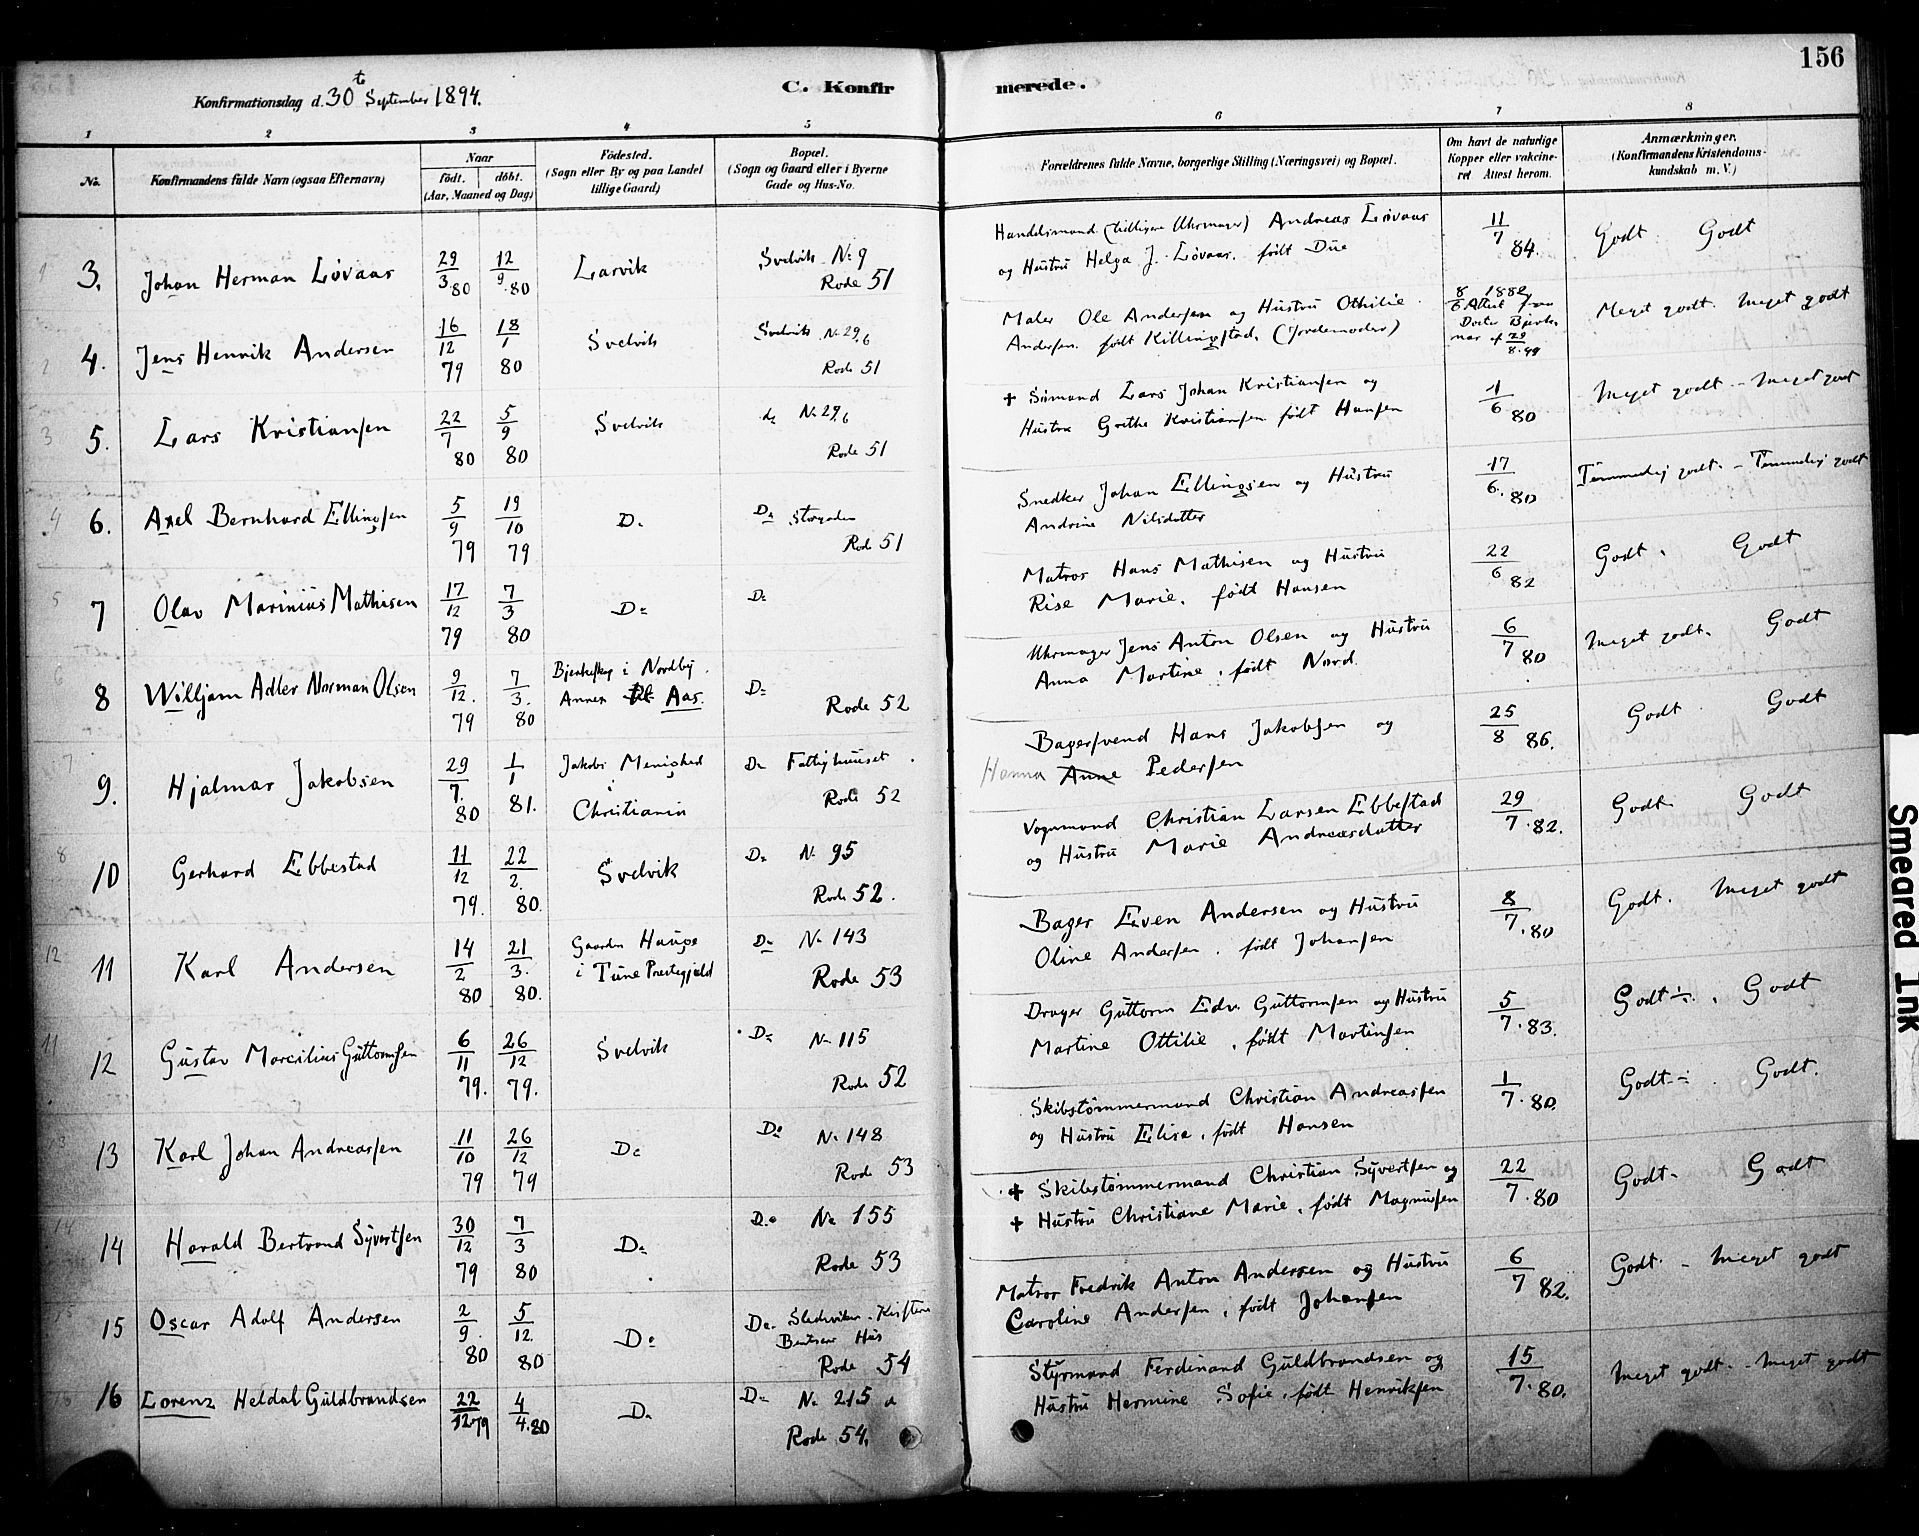 156
Konfirmationsdag d. 30t September 1894.
C. Konfirmerede.
1 2 3 4 5 6 7 8
No.
Konfirmandens fulde Navn (ogsaa Efternavn)
Naar
födt. döbt.
(Aar, Maaned og Dag)
Födested.
(Sogn eller By og paa Landet
tillige Gaard)
Bopæl.
(Sogn og Gaard eller i Byerne
Gade og Hus-No.
Forældrenes fulde Navne, borgerlige Stilling (Næringsvei) og Bopæl.
Om havt de naturlige
Kopper eller vakcine-
ret Attest herom.
Anmærkninger.
(Konfirmandens Kristendoms-
kundskab m. V.)
1 3. Johan Herman Lövaas 29/3 80 12/9 80 Larvik Svelvik No 9
Rode 51
Handelsmand (tidligere Uhrmager) Andreas Lövaas
og Hustru Helga J. Lövaas. født Due
11/7 84. Godt. Godt
2 4. Jens Henrik Andersen 16/12 79 18/1 80 Svelvik Svelvik No 296
Rode 51
Maler Ole Andersen og Hustru Othilie
Andersen. født Killingstad. (Jordemoder)
8/6 1882 Attest fra
Meget godt. Meget godt
3 5. Lars Kristiansen 22/7 80 5/9 80 Svelvik do No 296
Rode 51
+ Sömand Lars Johan Kristiansen og
Hustru Grethe Kristiansen født Hansen
1/6 80 Meget godt - Meget godt
4 6. Axel Bernhard Ellingsen 5/9 79 19/10 79 Do Do Storgaden
Rode 51
Snedker Johan Ellingsen og Hustru
Andrine Nilsdatter
17/6. 80 Temmelig godt. - Temmelig godt
5 7 Olav Marinius Mathisen 17/12 79 7/3 80 Do Do
Matros Hans Mathisen og Hustru
Rise Marie. født Hansen
22/6 82 Godt. Godt
6 8 Willjam Adler Norman Olsen 9/12. 79 7/3. 80 i Nordby
Annex til Aas. Do Rode 52
Uhrmager Jens Anton Olsen og Hustru
Anna Martine. født Nord.
6/7 80 Meget godt. Godt
7 9. Hjalmar Jakobsen 29/7. 80 1/1 81. Jakobs Menighed
i
Christiania Do Fattighuuset.
Rode 52
Bagersvend Hans Jakobsen og
Hanna Anne Pedersen
25/8 86. Godt. Godt
8 10 Gerhard Ebbestad 11/12 79. 22/2. 80. Svelvik Do No 95
Rode 52.
Vognmand Christian Larsen Ebbestad
og Hustru Marie Andreasdatter
29/7. 82. Godt. Godt
12 11 Karl Andersen 14/2 80 21/3. 80. Gaarden Hauge
i Tune Præstegjeld Do No 143
Rode 53
Bager Even Andersen og Hustru
Oline Andersen. født Johansen
8/7. 80 Godt. Meget godt
11 12 Gustav Marcilius Guttormsen 6/11 79. 26/12 79. Svelvik Do No 115
Rode 52
Drager Guttorm Edv. Guttormsen og Hustru
Martine Ottilie. født Martinsen
5/7. 83. Godt ÷. Godt
13 13 Karl Johan Andreassen 11/10 79 26/12 79 Do Do No 148
Rode 53
Skibstömmermand Christian Andreassen
og Hustru Elise. født Hansen
1/7. 80. Godt ÷. Godt.
14 14 Harald Bertrand Syvertsen 30/12 79 7/3 80 Do Do No 155
Rode 53
+ Skibstömmermand Christian Syvertsen og
+ Hustru Christiane Marie. født Magnussen
22/7. 80 Godt - Godt
15 15 Oscar Adolf Andersen 2/9. 80 5/12. 80 Do Do
Hus
Rode 54
Matros Fredrik Anton Andersen og Hustru
Caroline Andersen. født Johansen
6/7 82. Godt. - Meget godt
16 16 Lorenz Heldal Guldbrandsen 22/12 79 4/4. 80 Do Do No 215 a
Rode 54.
Styrmand Ferdinand Guldbrandsen og
Hustru Hermine Sofie. født Henriksen
15/7. 80. Meget godt. - Meget godt
Smeared Ink